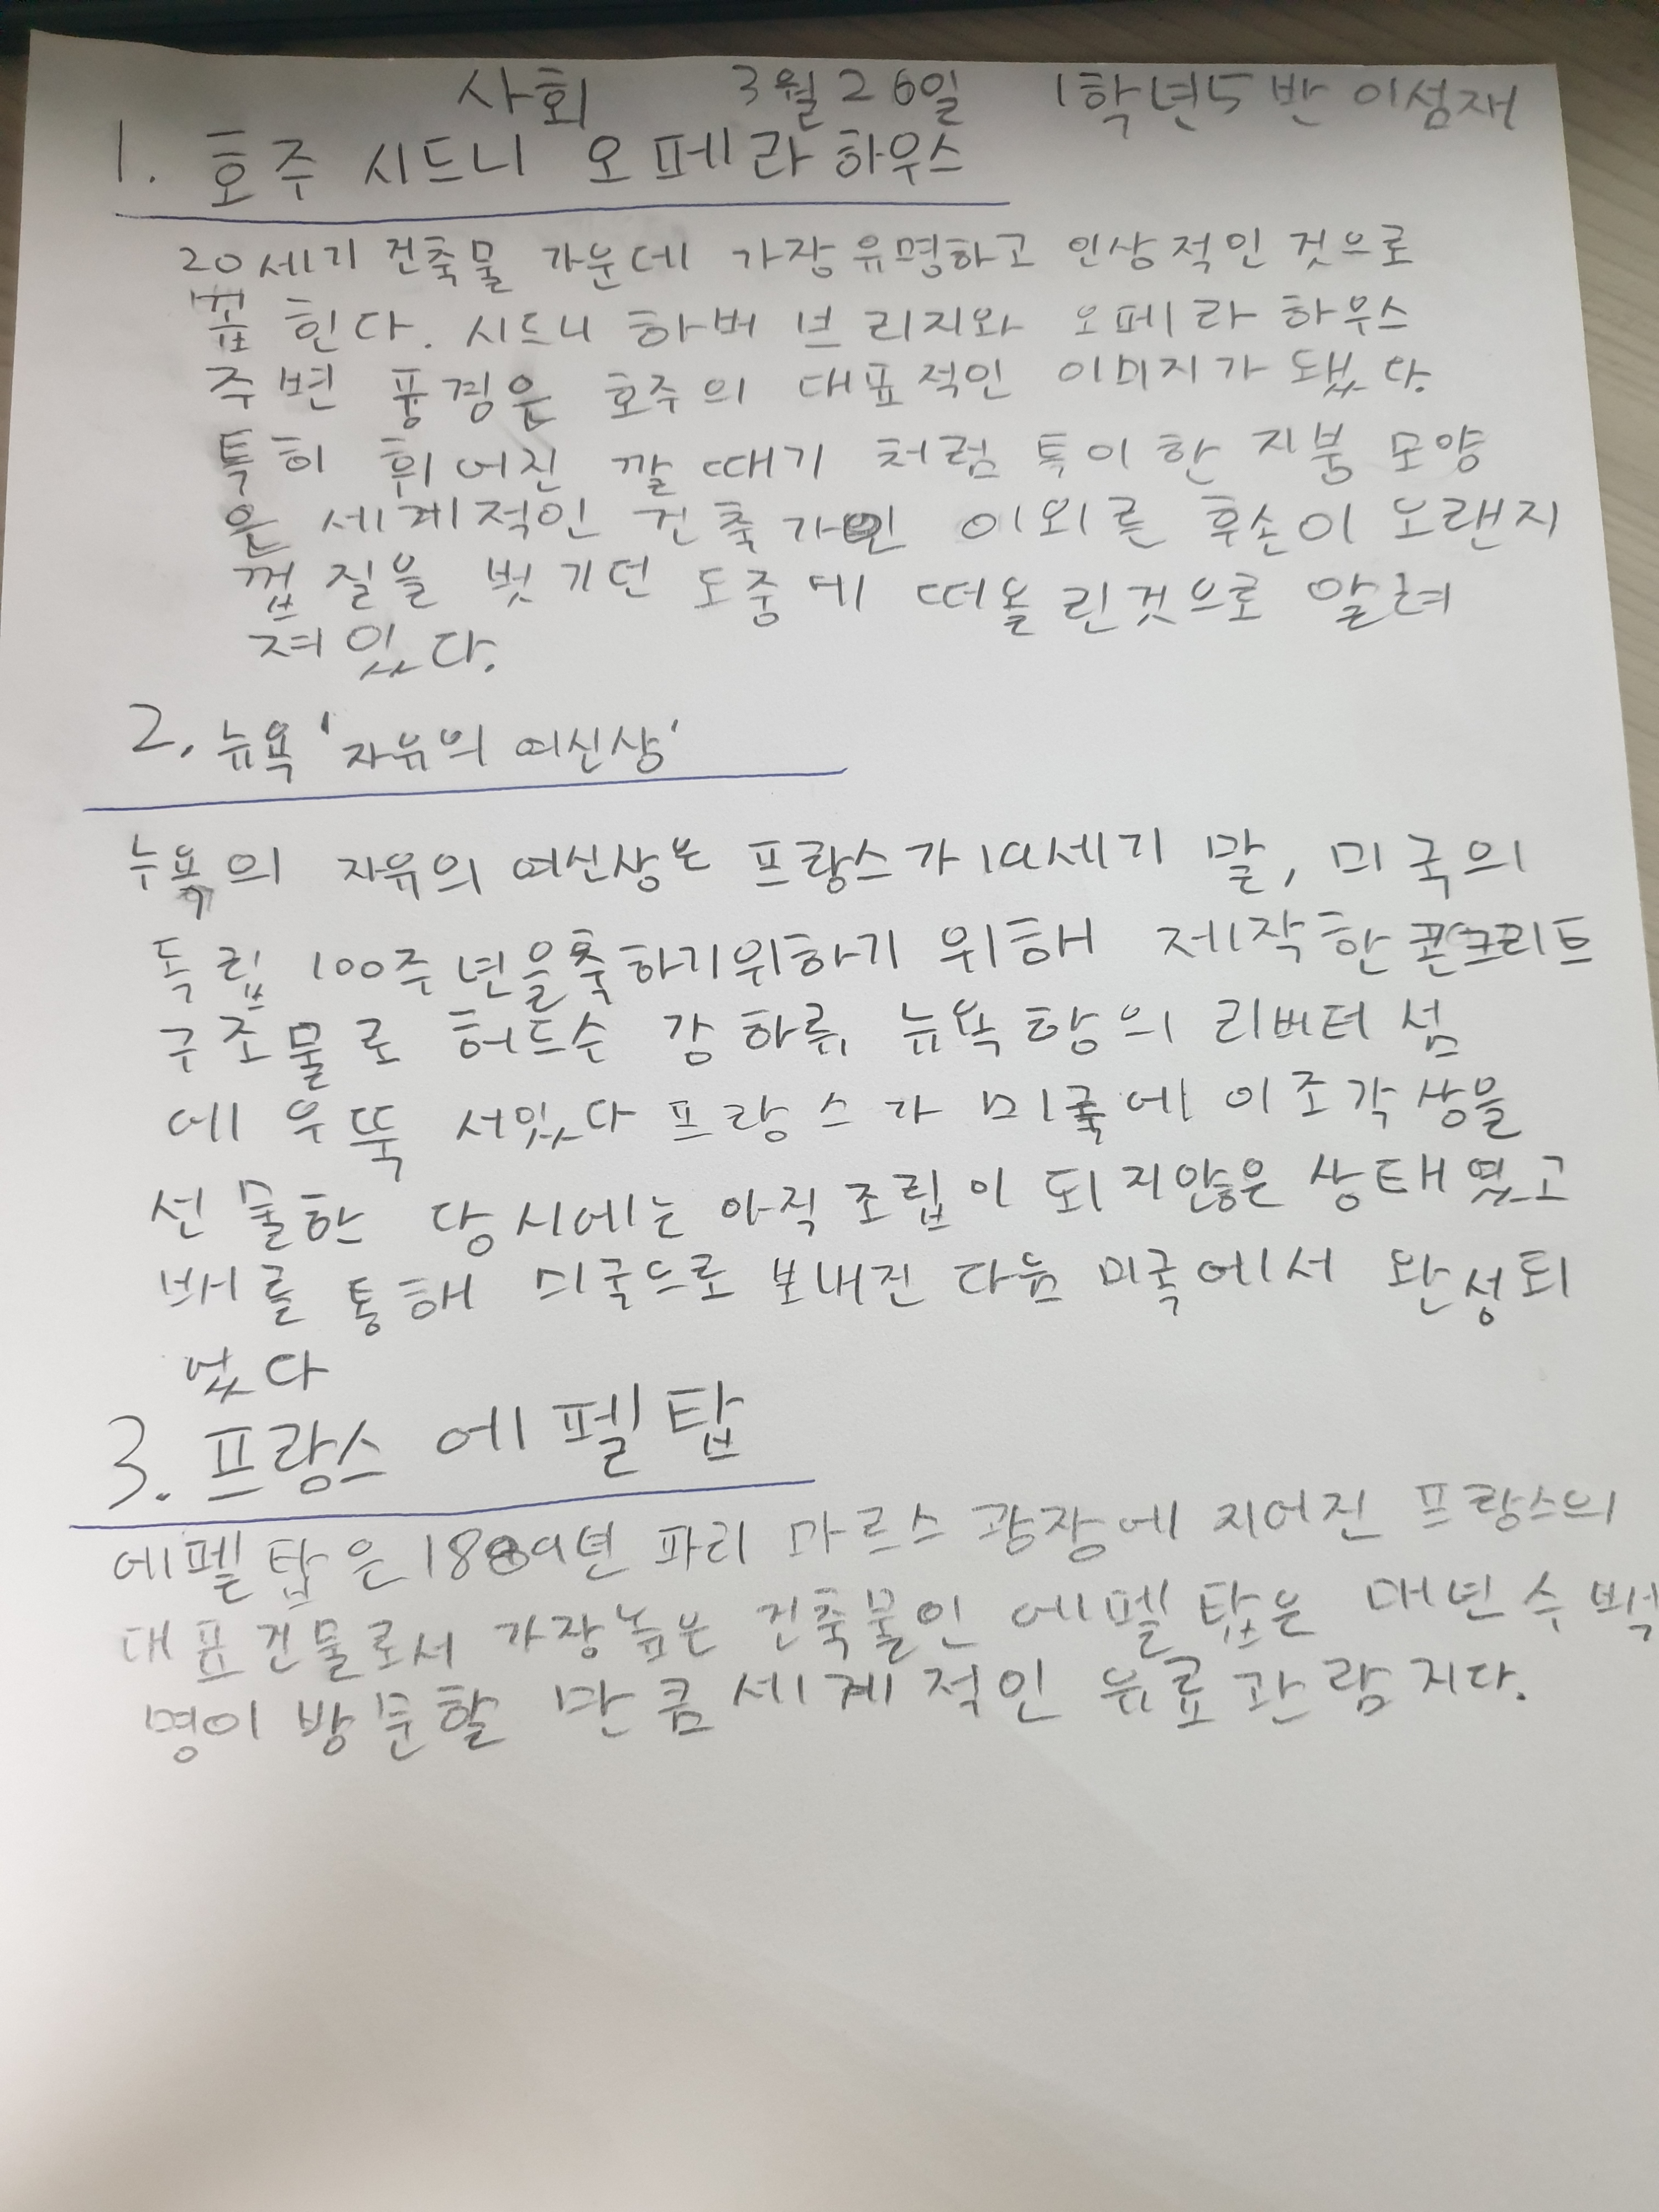 사회 3월 26일 1학년5반 이성재
1. 호주 시드니 오페라 하우스
20세기 건축물 가운데 가장유명하고 인상적인 것으로
꼽힌다. 시드니 하버 브리지와 오페라 하우스
주변 풍경은 호주의 대표적인 이미지가 됐다.
특히 휘어진 깔때기 처럼 특이한 지붕 모양
은 세계적인 건축가인 이외른 후손이 오랜지
껍질을 벗기던 도중에 떠올린것으로 알려
져있다.
2. 뉴욕 '자유의 여신상'
뉴욕의 자유의 여신상은 프랑스가 19세기 말, 미국의
독립 100주년을축하기위하기 위해 제작한콘크리트
구조물로 허드슨 강 하류, 뉴욕 항의 리버티 섬
에 우뚝 서있다 프랑스가 미국에 이조각상을
선물한 당시에는 아직 조립이 되지않은 상태였고
배를 통해 미국으로 보내진 다음 미국에서 완성되
었다
3. 프랑스 에펠탑
에펠탑은 1889년 파리 마르스 광장에 지어진 프랑스의
대표건물로서 가장높은 건축물인 에펠탑은 매년 수백
명이 방문할 만큼 세계적인 유료관람지다.